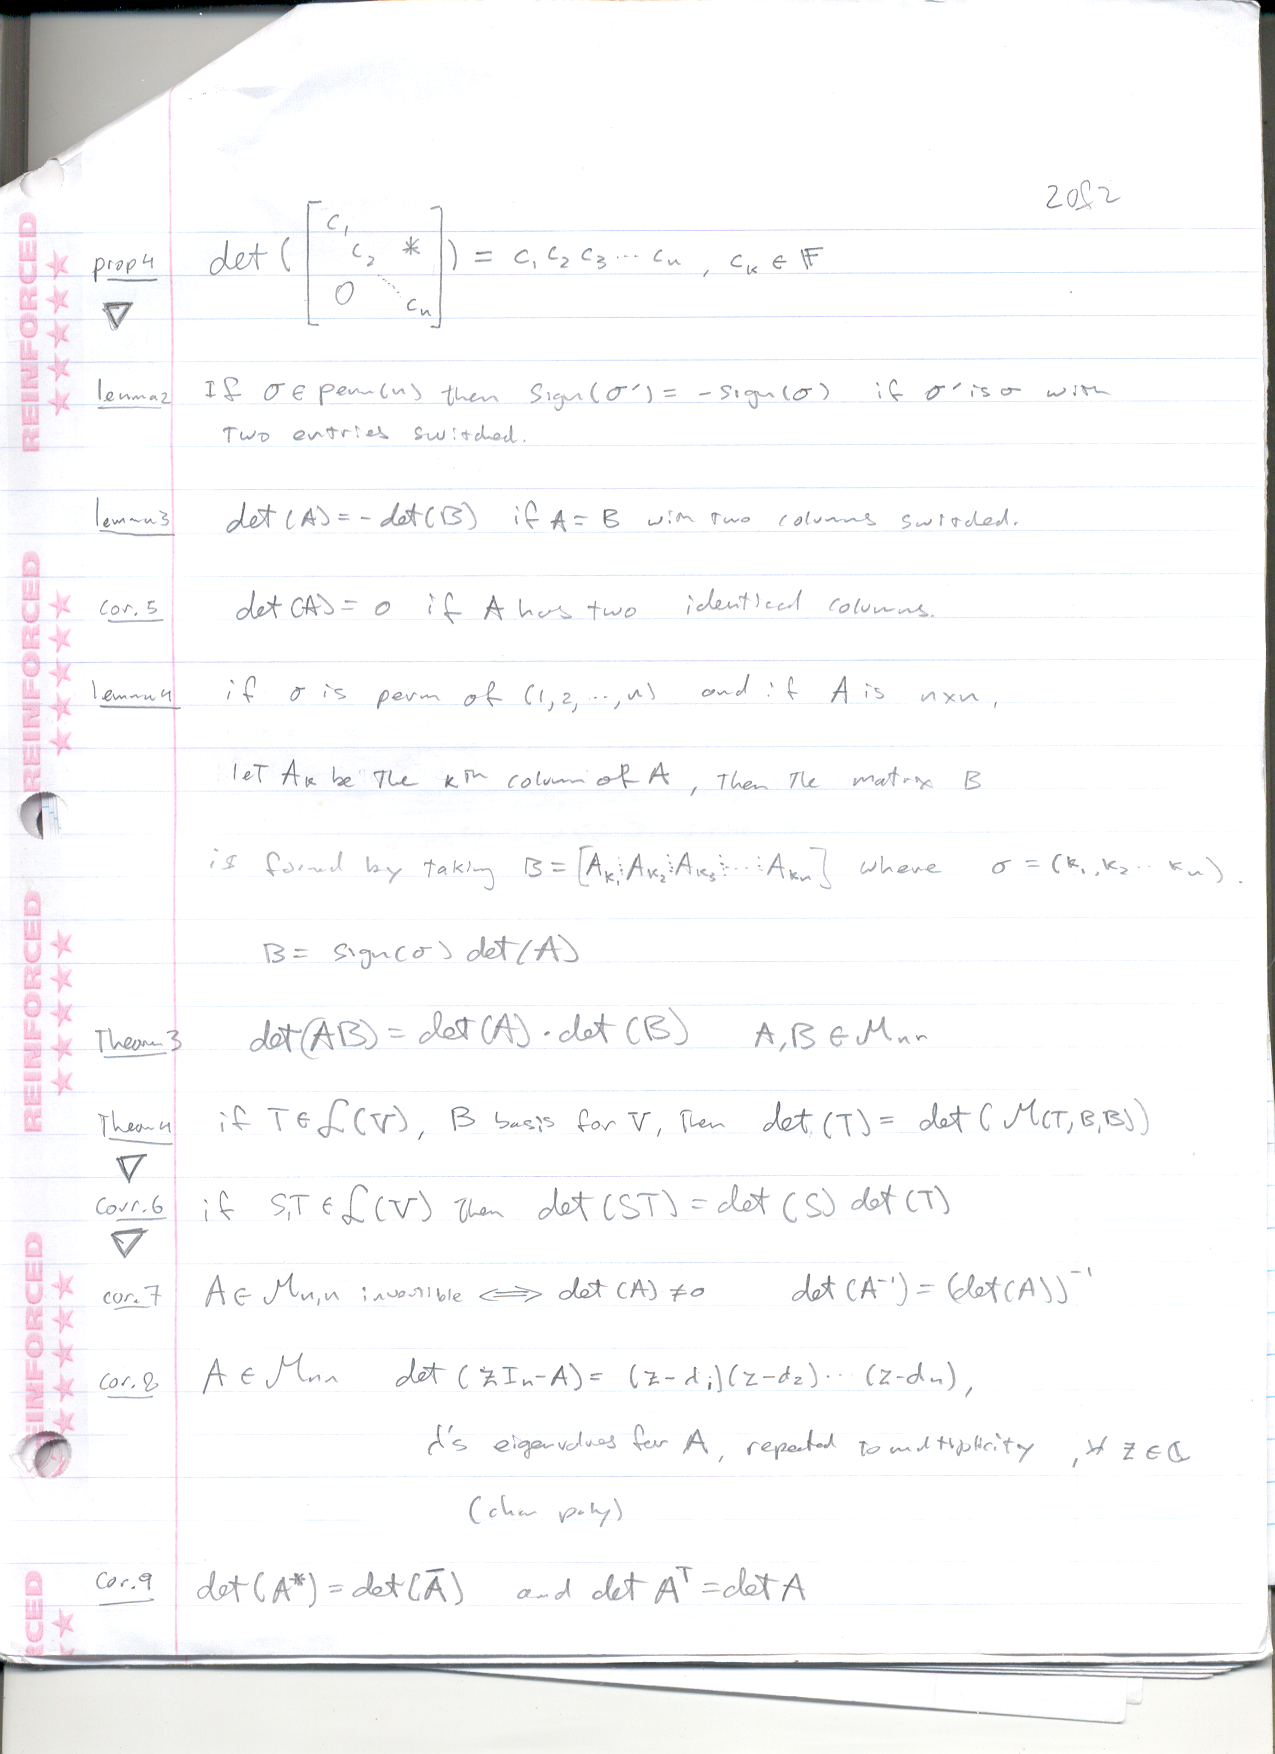 2 of 2
prop 4 det( [ c₁ c₂ * 0 ⋱ cₙ ] ) = c₁ c₂ c₃ ⋯ cₙ , cₖ ∈ 𝔽
▽
lemma 2 If σ ∈ perm(n) then sign(σ') = -sign(σ) if σ' is σ with
two entries switched.
lemma 3 det(A) = -det(B) if A = B with two columns switched.
cor. 5 det(A) = 0 if A has two identical columns.
lemma 4 if σ is perm of (1,2,⋯,n) and if A is n×n,
let Aₖ be the kth column of A, then the matrix B
is formed by taking B = [Aₖ₁⋮Aₖ₂⋮Aₖ₃⋮⋯⋮Aₖₙ] where σ = (k₁,k₂⋯kₙ).
B = sign(σ) det(A)
Theorem 3 det(AB) = det(A)·det(B) A,B ∈ Mₙₙ
Theorem 4 if T ∈ ℒ(V), B basis for V, then det(T) = det(M(T,B,B))
▽
Corr. 6 if S,T ∈ ℒ(V) then det(ST) = det(S) det(T)
▽
cor. 7 A ∈ Mₙ,ₙ invertible ⟺ det(A) ≠ 0 det(A⁻¹) = (det(A))⁻¹
cor. 8 A ∈ Mₙₙ det(zIₙ-A) = (z-d₁)(z-d₂)⋯(z-dₙ),
d's eigenvalues for A, repeated to multiplicity, ∀ z ∈ ℂ
(char poly)
cor. 9 det(A*) = det(Ā) and det Aᵀ = det A
REINFORCED
REINFORCED
REINFORCED
REINFORCED
RCED